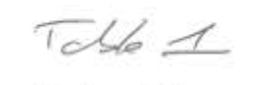 Table 1